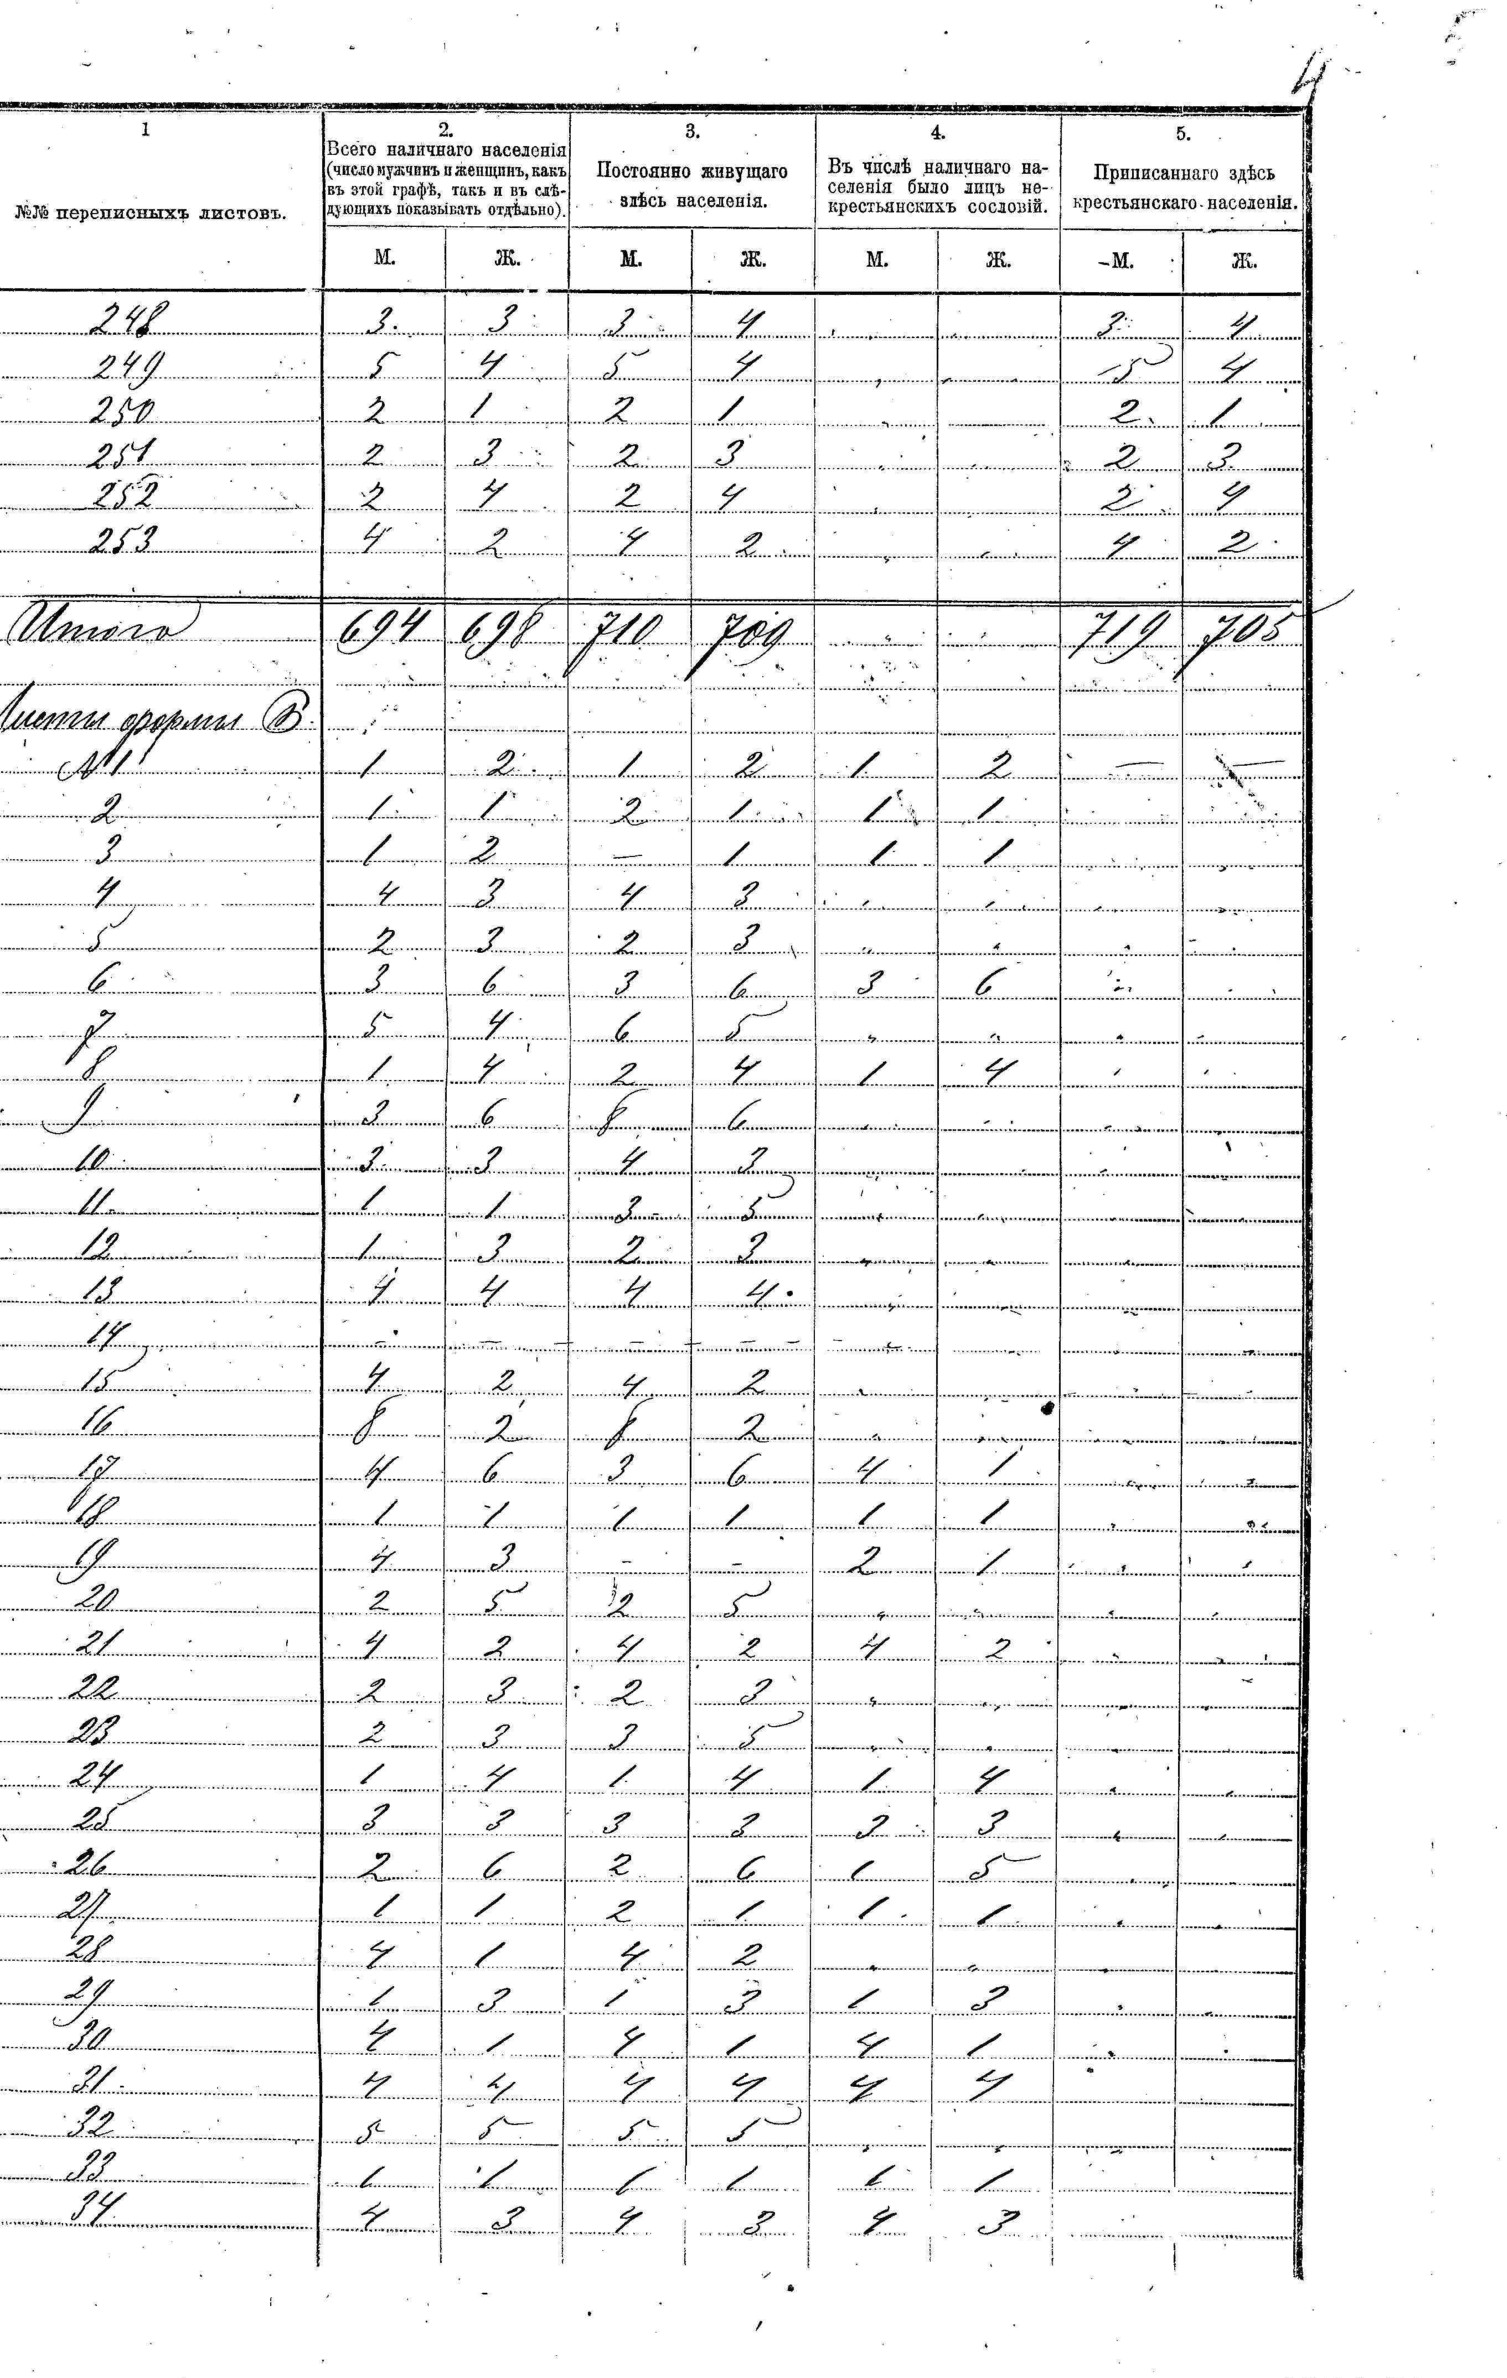 4
1
2.
3.
4.
5.
№№ переписныхъ листовъ.
Всего наличнаго населенія (число мужчинъ и женщинъ, какъ въ этой графѣ, такъ и въ слѣ-дующихъ показывать отдѣльно).
Постоянно живущаго здѣсь населенія.
Въ числѣ наличнаго на-селенія было лицъ не-крестьянскихъ сословій.
Приписаннаго здѣсь крестьянскаго населенія.
М. Ж. М. Ж. М. Ж. М. Ж.
248 3 3 3 4 3 4
249 5 4 5 4 5 4
250 2 1 2 1 2 1
251 2 3 2 3 2 3
252 2 4 2 4 2 4
253 4 2 4 2 4 2
Итого 694 698 710 709 719 705
Листы формы В.
№ 1 1 2 1 2 1 2 — —
2 1 1 2 1 1 1
3 1 2 — 1 1 1
4 4 3 4 3
5 2 3 2 3
6 3 6 3 6 3 6
7 5 4 6 5
8 1 4 2 4 1 4
9 3 6 8 6
10 3 3 4 3
11 1 1 3 5
12 1 3 2 3
13 4 4 4 4
14 — — — — —
15 4 2 4 2
16 8 2 8 2
17 4 6 3 6 4 1
18 1 1 1 1 1 1
19 4 3 — — 2 1
20 2 5 2 5
21 4 2 4 2 4 2
22 2 3 2 3
23 2 3 3 5
24 1 4 1 4 1 4
25 3 3 3 3 3 3
26 2 6 2 6 1 5
27 1 1 2 1 1 1
28 4 1 4 2
29 1 3 1 3 1 3
30 4 1 4 1 4 1
31 4 4 4 4 4 4
32 5 5 5 5
33 1 1 1 1 1 1
34 4 3 4 3 4 3